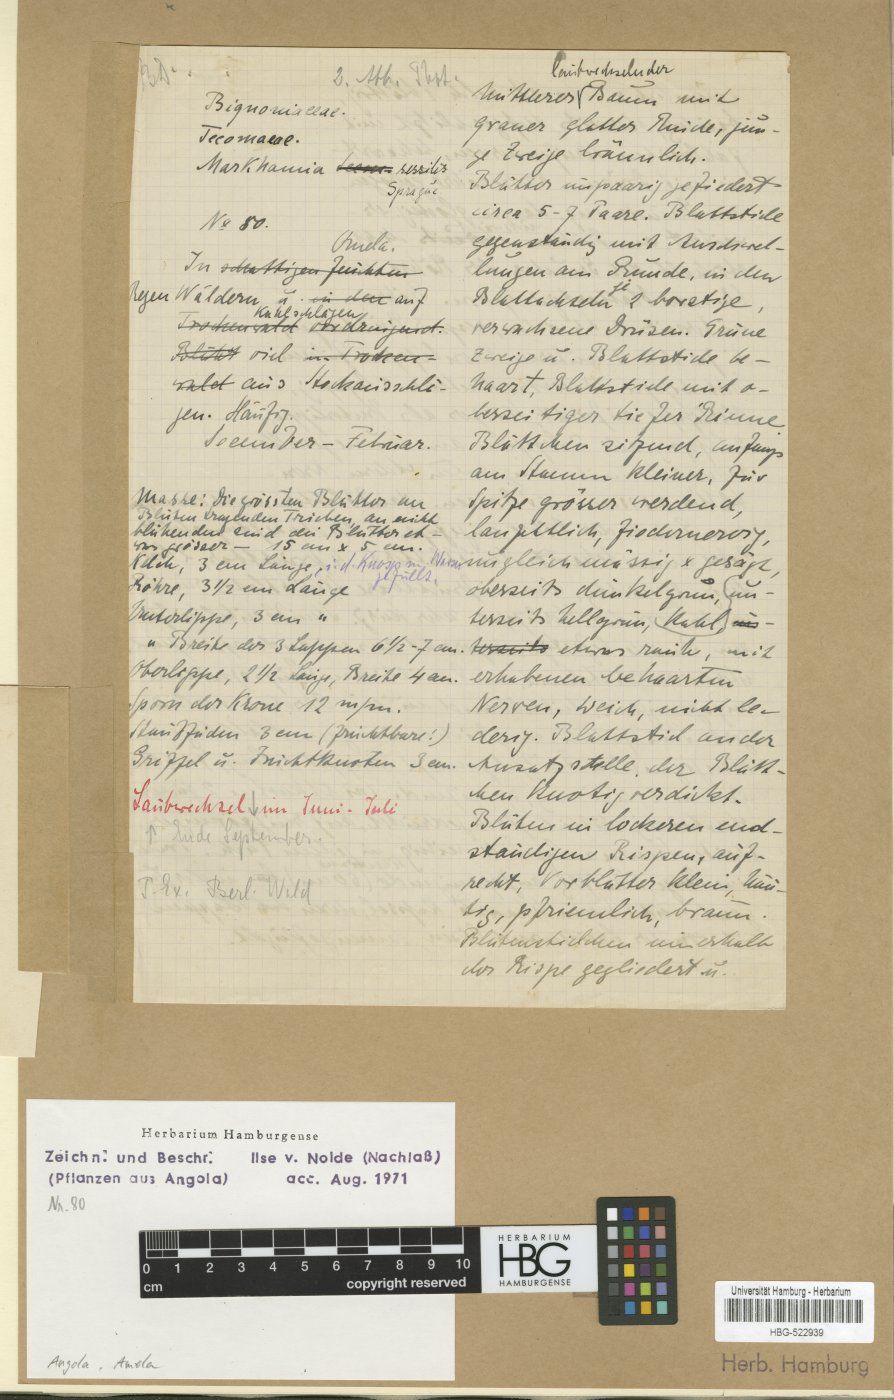 2. Abb. Phot.
Bignoniaceae.
Tecomaeae.
Markhamia sessilis
Sprague
No 80.
Amela.
In schattigen feuchten
Regen Wäldern u. in den auf
Kahlschlägen
Trockenwald vordringend.
Blüht viel im Trocken-
wald aus Stockausschlä-
gen. Häufig.
Dezember - Februar.
Masse: Die grössten Blätter an
Blüten tragenden Trieben, an nicht
blühenden sind die Blätter et-
was grösser - 15 cm x 5 cm.
Kelch, 3 cm Länge, i. d. Knospe m. Wasser
gefüllt.
Röhre, 3 1/2 cm Länge
Unterlippe, 3 cm "
" Breite der 3 Lappen 6 1/2 - 7 cm.
Oberlippe, 2 1/2 Länge, Breite 4 cm.
Sporn der Krone 12 m/m.
Staubfäden 3 cm (fruchtbare!)
Griffel u. Fruchtknoten 3 cm.
Laubwechsel ↓ im Juni - Juli
↑ Ende September.
T. Ex. Berl. Wild
laubwechselnder
Mittlerer Baum mit
grauer glatter Rinde, jun-
ge Zweige bräunlich.
Blätter unpaarig gefiedert
circa 5-7 Paare. Blattstiele
gegenständig mit Anschwel-
lungen am Grunde, in den
Blattachseln je 2 borstige,
verwachsene Drüsen. Grüne
Zweige u. Blattstiele be-
haart, Blattstiele mit o-
berseitiger tiefer Rinne
Blättchen sitzend, anfangs
am Stamm kleiner, zur
Spitze grösser werdend,
lanzettlich, fiedernervig,
ungleichmässig x gesägt,
oberseits dunkelgrün, un-
terseits hellgrün, kahl, un-
terseits etwas rauh, mit
erhabenen behaarten
Nerven, weich, nicht le-
derig. Blattstiel an der
Ansatzstelle der Blätt-
chen knotig verdickt.
Blüten in lockeren end-
ständigen Rispen, auf-
recht, Vorblätter klein, häu-
tig, pfriemlich, braun.
Blütenstielchen innerhalb
der Rispe gegliedert u.
Herbarium Hamburgense
Zeichn. und Beschr. Ilse v. Nolde (Nachlaß)
(Pflanzen aus Angola) acc. Aug. 1971
Nr. 80
0 1 2 3 4 5 6 7 8 9 10
cm copyright reserved
HERBARIUM
HBG
HAMBURGENSE
Universität Hamburg - Herbarium
HBG-522939
Herb. Hamburg
Angola, Amela